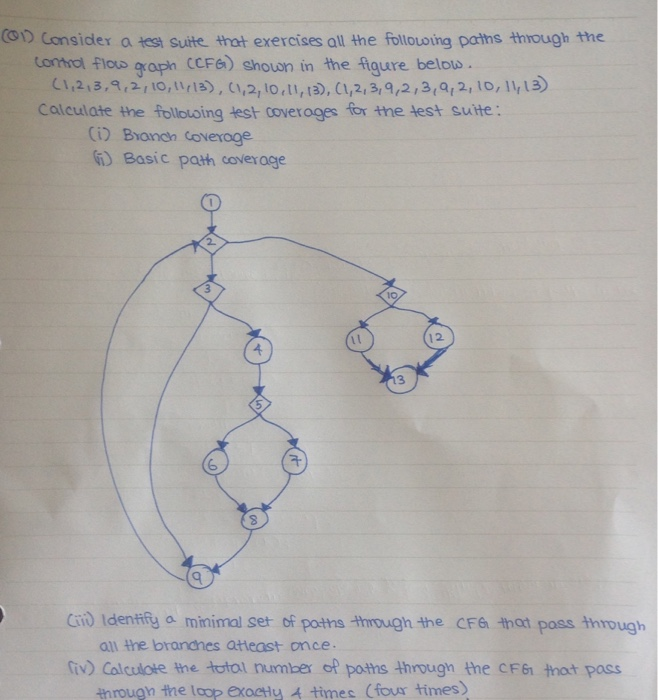 (Q1) Consider a test suite that exercises all the following paths through the
control flow graph (CFG) shown in the figure below.
(1,2,3,9,2,10,11,13), (1,2,10,11,13), (1,2,3,9,2,3,9,2,10,11,13)
Calculate the following test coverages for the test suite:
(i) Branch coverage
(ii) Basic path coverage
1
2
3
10
4
11
12
13
5
6
7
8
9
(iii) Identify a minimal set of paths through the CFG that pass through
all the branches atleast once.
(iv) Calculate the total number of paths through the CFG that pass
through the loop exactly 4 times (four times)